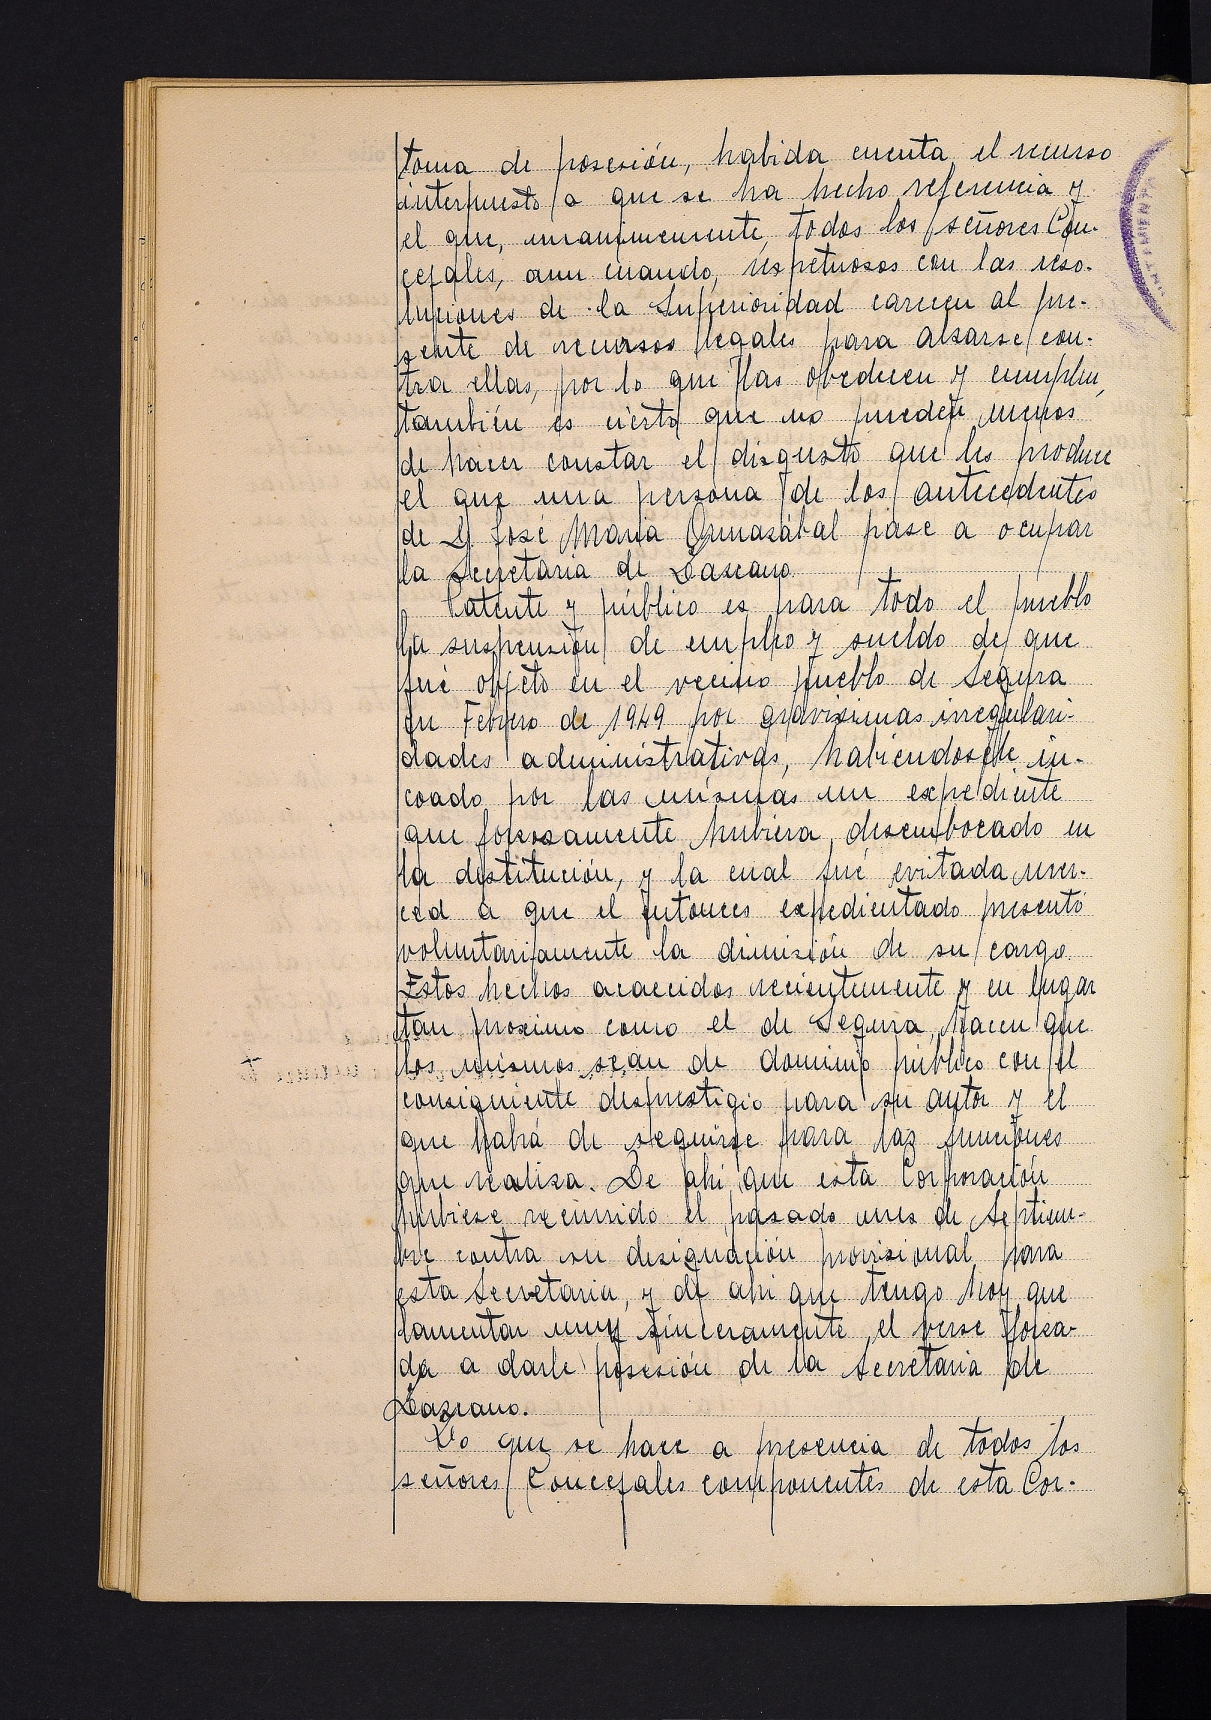 toma de posesión, habida cuenta el recurso
interpuesto a que se ha hecho referencia y
el que, unanimemente, todos los señores Con-
cejales, aun cuando, respetuosos con las reso-
luciones de la Superioridad carecen al pre-
sente de recursos legales para alzarse con-
tra ellas, por lo que las obedecen y cumplen,
también es cierto que no pueden menos
de hacer constar el disgusto que les produce
el que una persona de los antecedentes
de D. José Maria Ormazábal pase a ocupar
la Secretaria de Lazcano.
Patente y público es para todo el pueblo
la suspensión de empleo y sueldo de que
fué objeto en el vecino pueblo de Segura
en Febrero de 1949 por gravisimas irregulari-
dades administrativas, habiendosele in-
coado por las mismas un expediente
que forzosamente hubiera desembocado en
la destitución, y la cual fué evitada mer-
ced a que el entonces expedientado presentó
voluntariamente la dimisión de su cargo.
Estos hechos acaecidos recientemente y en lugar
tan proximo como el de Segura, hacen que
los mismos sean de dominio público con el
consiguiente desprestigio para su autor y el
que habrá de seguirse para las funciones
que realiza. De ahi que esta Corporación
hubiese recurrido el pasado mes de Septiem-
bre contra su designación provisional para
esta Secretaria, y de ahi que tengo hoy que
lamentar muy sinceramente el verse forza-
da a darle posesión de la Secretaria de
Lazcano.
Lo que se hace a presencia de todos los
señores Concejales componentes de esta Cor-